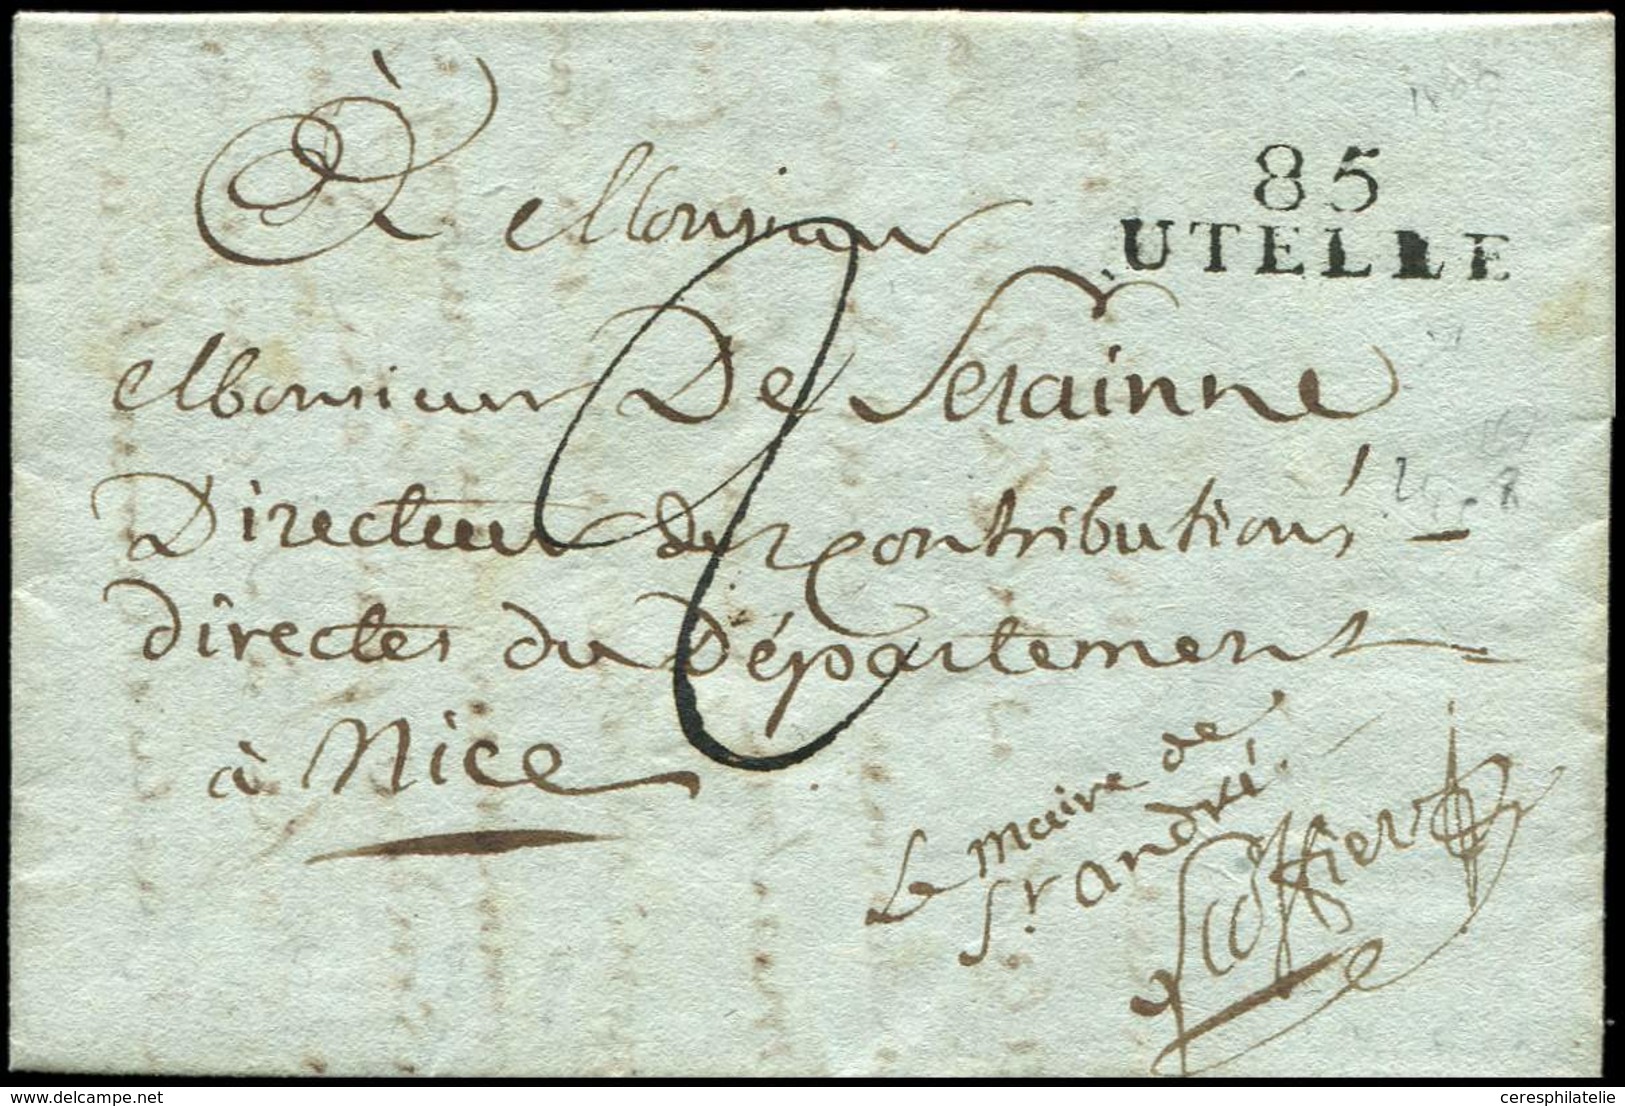 85
UTELLE
À Monsieur
Monsieur De Serainne
Directeur des Contributions
directes du Département
à Nice
2
Le maire de
St. André
Scoffier
ceresphilatelie